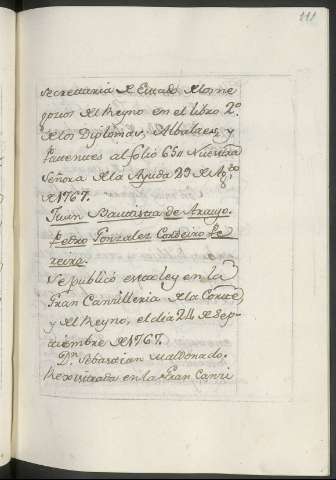 111
Secretaria de Estado de los ne
gocios del Reyno en el libro 2º
de los Diplomas, Albalaes, y
patentes al folio 65// Nuestra
Señora de la Ayuda 29 de Ag.to
de 1767.
Juan Bautista de Araujo.
Pedro Gonzalez Cordeiro Pe
reira.
Se publicó esta ley en la
Gran Cancilleria de la Corte,
y del Reyno, el dia 24 de Sep-
tiembre de 1767.
Dn. Sebastian Maldonado.
Rexistrada en la Gran Canci